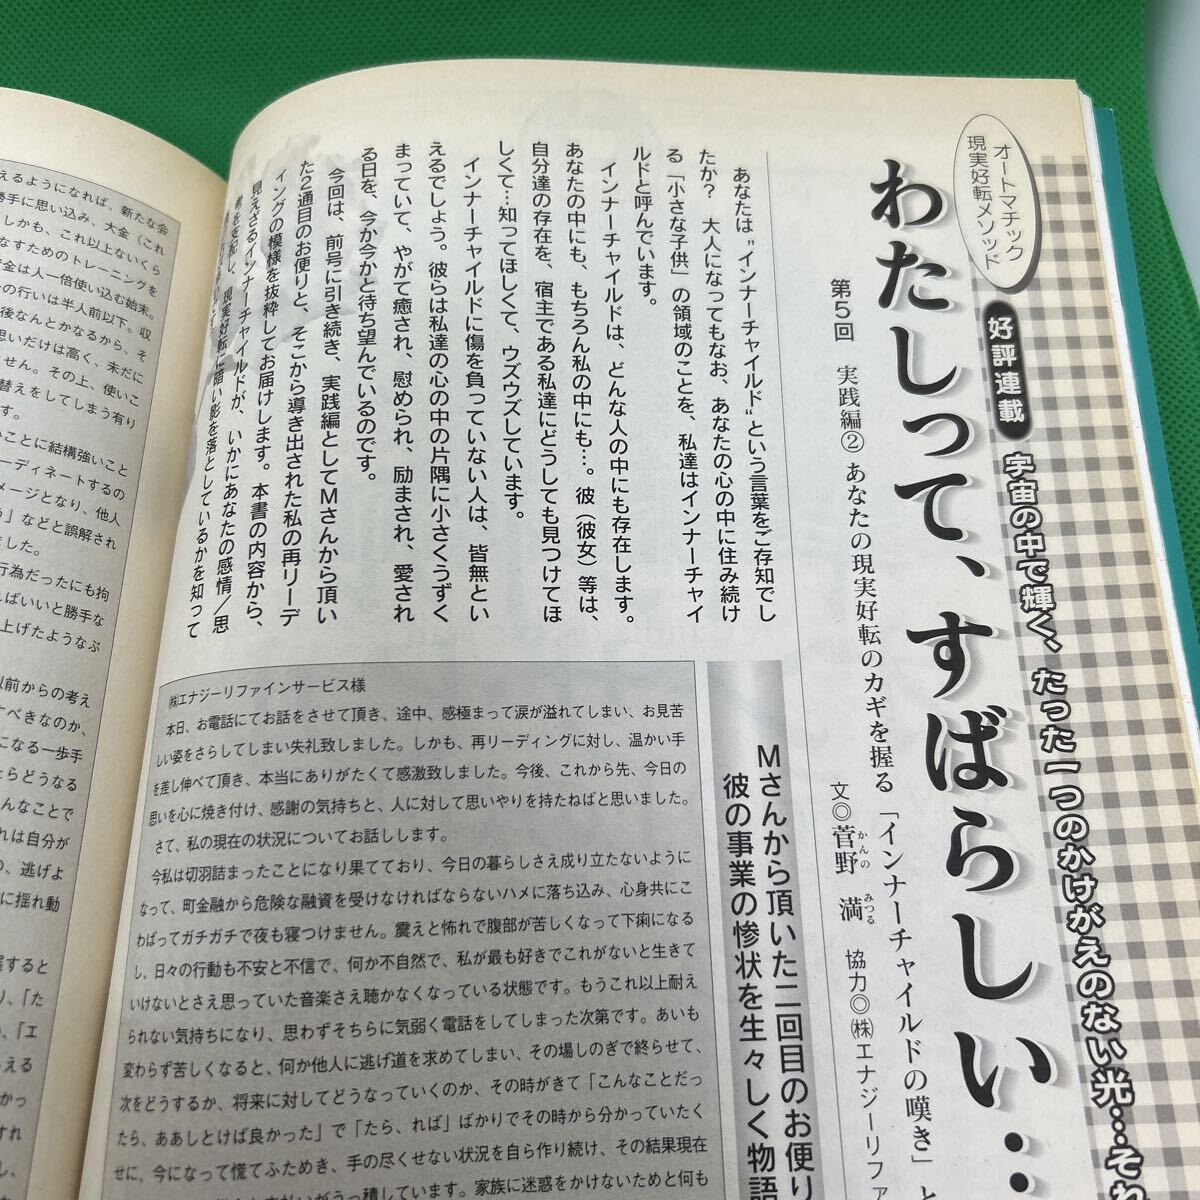 オートマチック
現実好転メソッド
好評連載
宇宙の中で輝く、たった一つのかけがえのない光…それ
わたしって、すばらしい…
第5回 実践編② あなたの現実好転のカギを握る「インナーチャイルドの嘆き」と
文◎菅野 満 協力◎㈱エナジーリファ
かんの みつる
あなたは"インナーチャイルド"という言葉をご存知でし
たか? 大人になってもなお、あなたの心の中に住み続け
る「小さな子供」の領域のことを、私達はインナーチャイ
ルドと呼んでいます。
インナーチャイルドは、どんな人の中にも存在します。
あなたの中にも、もちろん私の中にも…。彼(彼女)等は、
自分達の存在を、宿主である私達にどうしても見つけてほ
しくて…知ってほしくて、ウズウズしています。
インナーチャイルドに傷を負っていない人は、皆無とい
えるでしょう。彼らは私達の心の中の片隅に小さくうずく
まっていて、やがて癒され、慰められ、励まされ、愛され
る日を、今か今かと待ち望んでいるのです。
今回は、前号に引き続き、実践編としてMさんから頂い
た2通目のお便りと、そこから導き出された私の再リーデ
ィングの模様を抜粋してお届けします。本書の内容から、
見えざるインナーチャイルドが、いかにあなたの感情/思
考を支配し、現実好転に暗い影を落としているかを知って
Mさんから頂いた二回目のお便り
彼の事業の惨状を生々しく物語
㈱エナジーリファインサービス様
本日、お電話にてお話をさせて頂き、途中、感極まって涙が溢れてしまい、お見苦
しい姿をさらしてしまい失礼致しました。しかも、再リーディングに対し、温かい手
を差し伸べて頂き、本当にありがたくて感激致しました。今後、これから先、今日の
思いを心に焼き付け、感謝の気持ちと、人に対して思いやりを持たねばと思いました。
さて、私の現在の状況についてお話しします。
今私は切羽詰まったことになり果てており、今日の暮らしさえ成り立たないように
なって、町金融から危険な融資を受けなければならないハメに落ち込み、心身共にこ
わばってガチガチで夜も寝つけません。震えと怖れで腹部が苦しくなって下痢になる
し、日々の行動も不安と不信で、何か不自然で、私が最も好きでこれがないと生きて
いけないとさえ思っていた音楽さえ聴かなくなっている状態です。もうこれ以上耐え
られない気持ちになり、思わずそちらに気弱く電話をしてしまった次第です。あいも
変わらず苦しくなると、何か他人に逃げ道を求めてしまい、その場しのぎで終らせて、
次をどうするか、将来に対してどうなっていくのか、その時がきて「こんなことだっ
たら、ああしとけば良かった」で「たら、れば」ばかりでその時から分かっていたく
せに、今になって慌てふためき、手の尽くせない状況を自ら作り続け、その結果現在
えるようになれば、新たな会
勝手に思い込み、大金(これ
しかも、これ以上ないくら
なすためのトレーニングを
金は人一倍使い込む始末。
の行いは半人前以下。収
後なんとかなるから、そ
思いだけは高く、未だに
せん。その上、使いこ
替えをしてしまう有り
す。
いことに結構強いこと
ーディネートするの
メージとなり、他人
う」などと誤解され
ました。
行為だったにも拘
ればいいと勝手な
上げたようなぶ
以前からの考え
すべきなのか、
になる一歩手
たらどうなる
んなことで
れは自分が
の、逃げよ
に揺れ動
展すると
り、「た
、「エ
える
かっ
すれ
し、